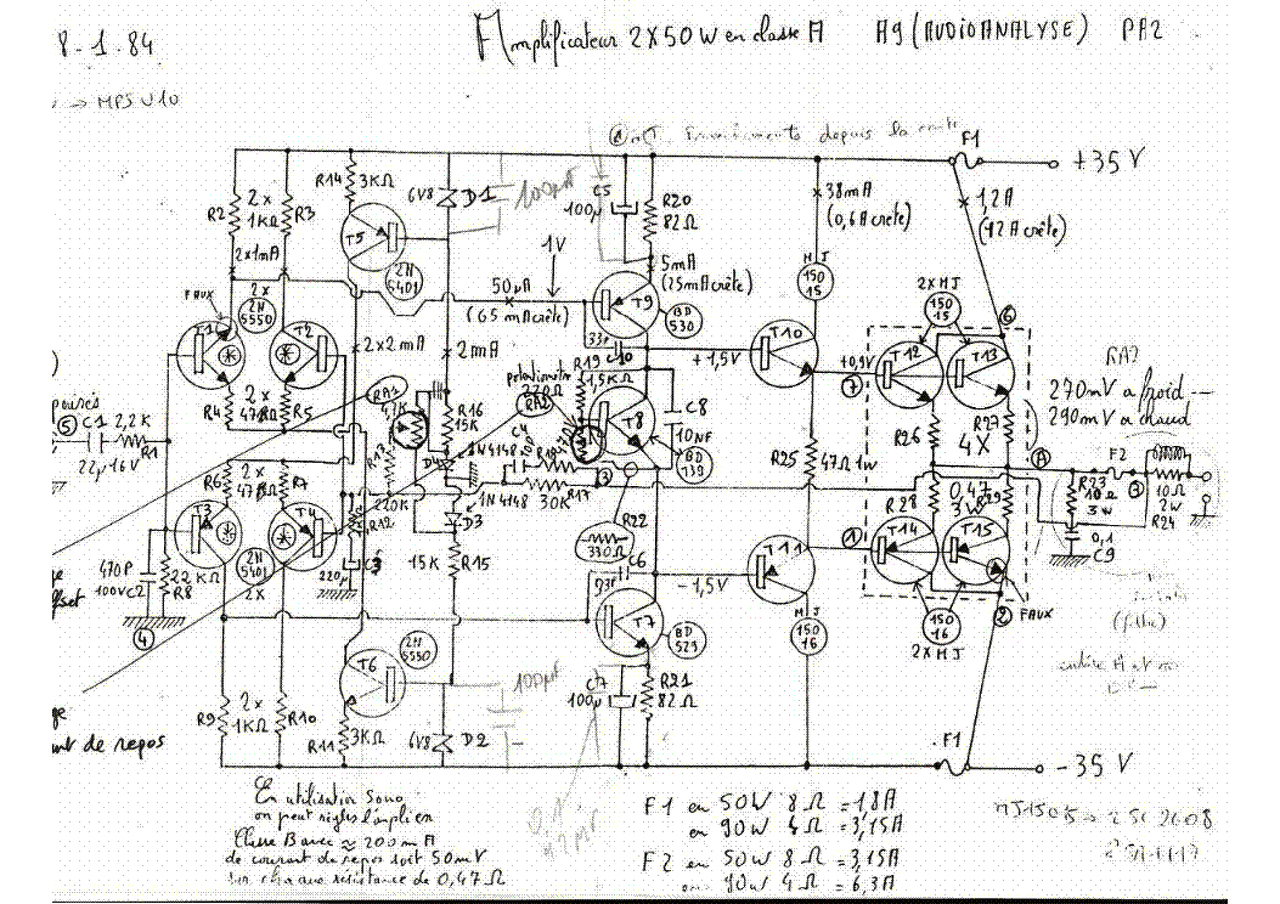 8.1.84
Amplificateur 2X50W en classe A A9 (AUDIOANALYSE) PA2
→ MPS U10
depuis la
F1
+35V
R14
3KΩ
6V8
D1
100µF
C5
100µ
R20
82Ω
38mA
(0,6A crète)
1,2A
(12A crète)
R2
2x
1KΩ
R3
T5
2N
5401
1V
2x1mA
50µA
(65 mA crète)
5mA
(25mA crête)
MJ
150
15
2xMJ
150
15
FAUX
2x
2N
5550
T9
BD
530
6
T1
T2
2x2mA
2mA
33p
C10
+1,5V
T10
+0,9V
7
T12
T13
RA2
270mV a froid
290mV a chaud
potentiomètre
220Ω
RA2
R19
1,5KΩ
RA1
4,7K
R16
15K
T8
C8
10NF
BD
139
R4
2x
47Ω
R5
5
C1
2,2K
R1
22µ16V
C4
1N4148
D4
R18
R17
30K
3
R13
220K
R25
47Ω 1W
R26
R27
4X
A
F2
3
R23
10Ω
3W
10Ω
2W
R24
R6
2x
47Ω
R7
R28
0,47
3W
R29
T3
T4
R12
1N4148
D3
R22
330Ω
1
T14
T15
0,1
C9
470P
100V C2
22KΩ
R8
2N
5401
2x
220µ
C3
15K
R15
C6
33P
-1,5V
T11
4
T7
BD
529
MJ
150
16
150
16
2xMJ
2
FAUX
(filtre)
T6
2N
5550
100µF
C7
100µ
R21
82Ω
R9
2x
1KΩ
R10
R11
3KΩ
6V8
D2
F1
-35V
de repos
En utilisation Sono
on peut régler l'ampli en
Classe B avec ≈ 200mA
de courant de repos soit 50mV
sur chaque résistance de 0,47Ω
F1 en 50W 8Ω = 1,8A
en 90W 4Ω = 3,15A
F2 en 50W 8Ω = 3,15A
en 90W 4Ω = 6,3A